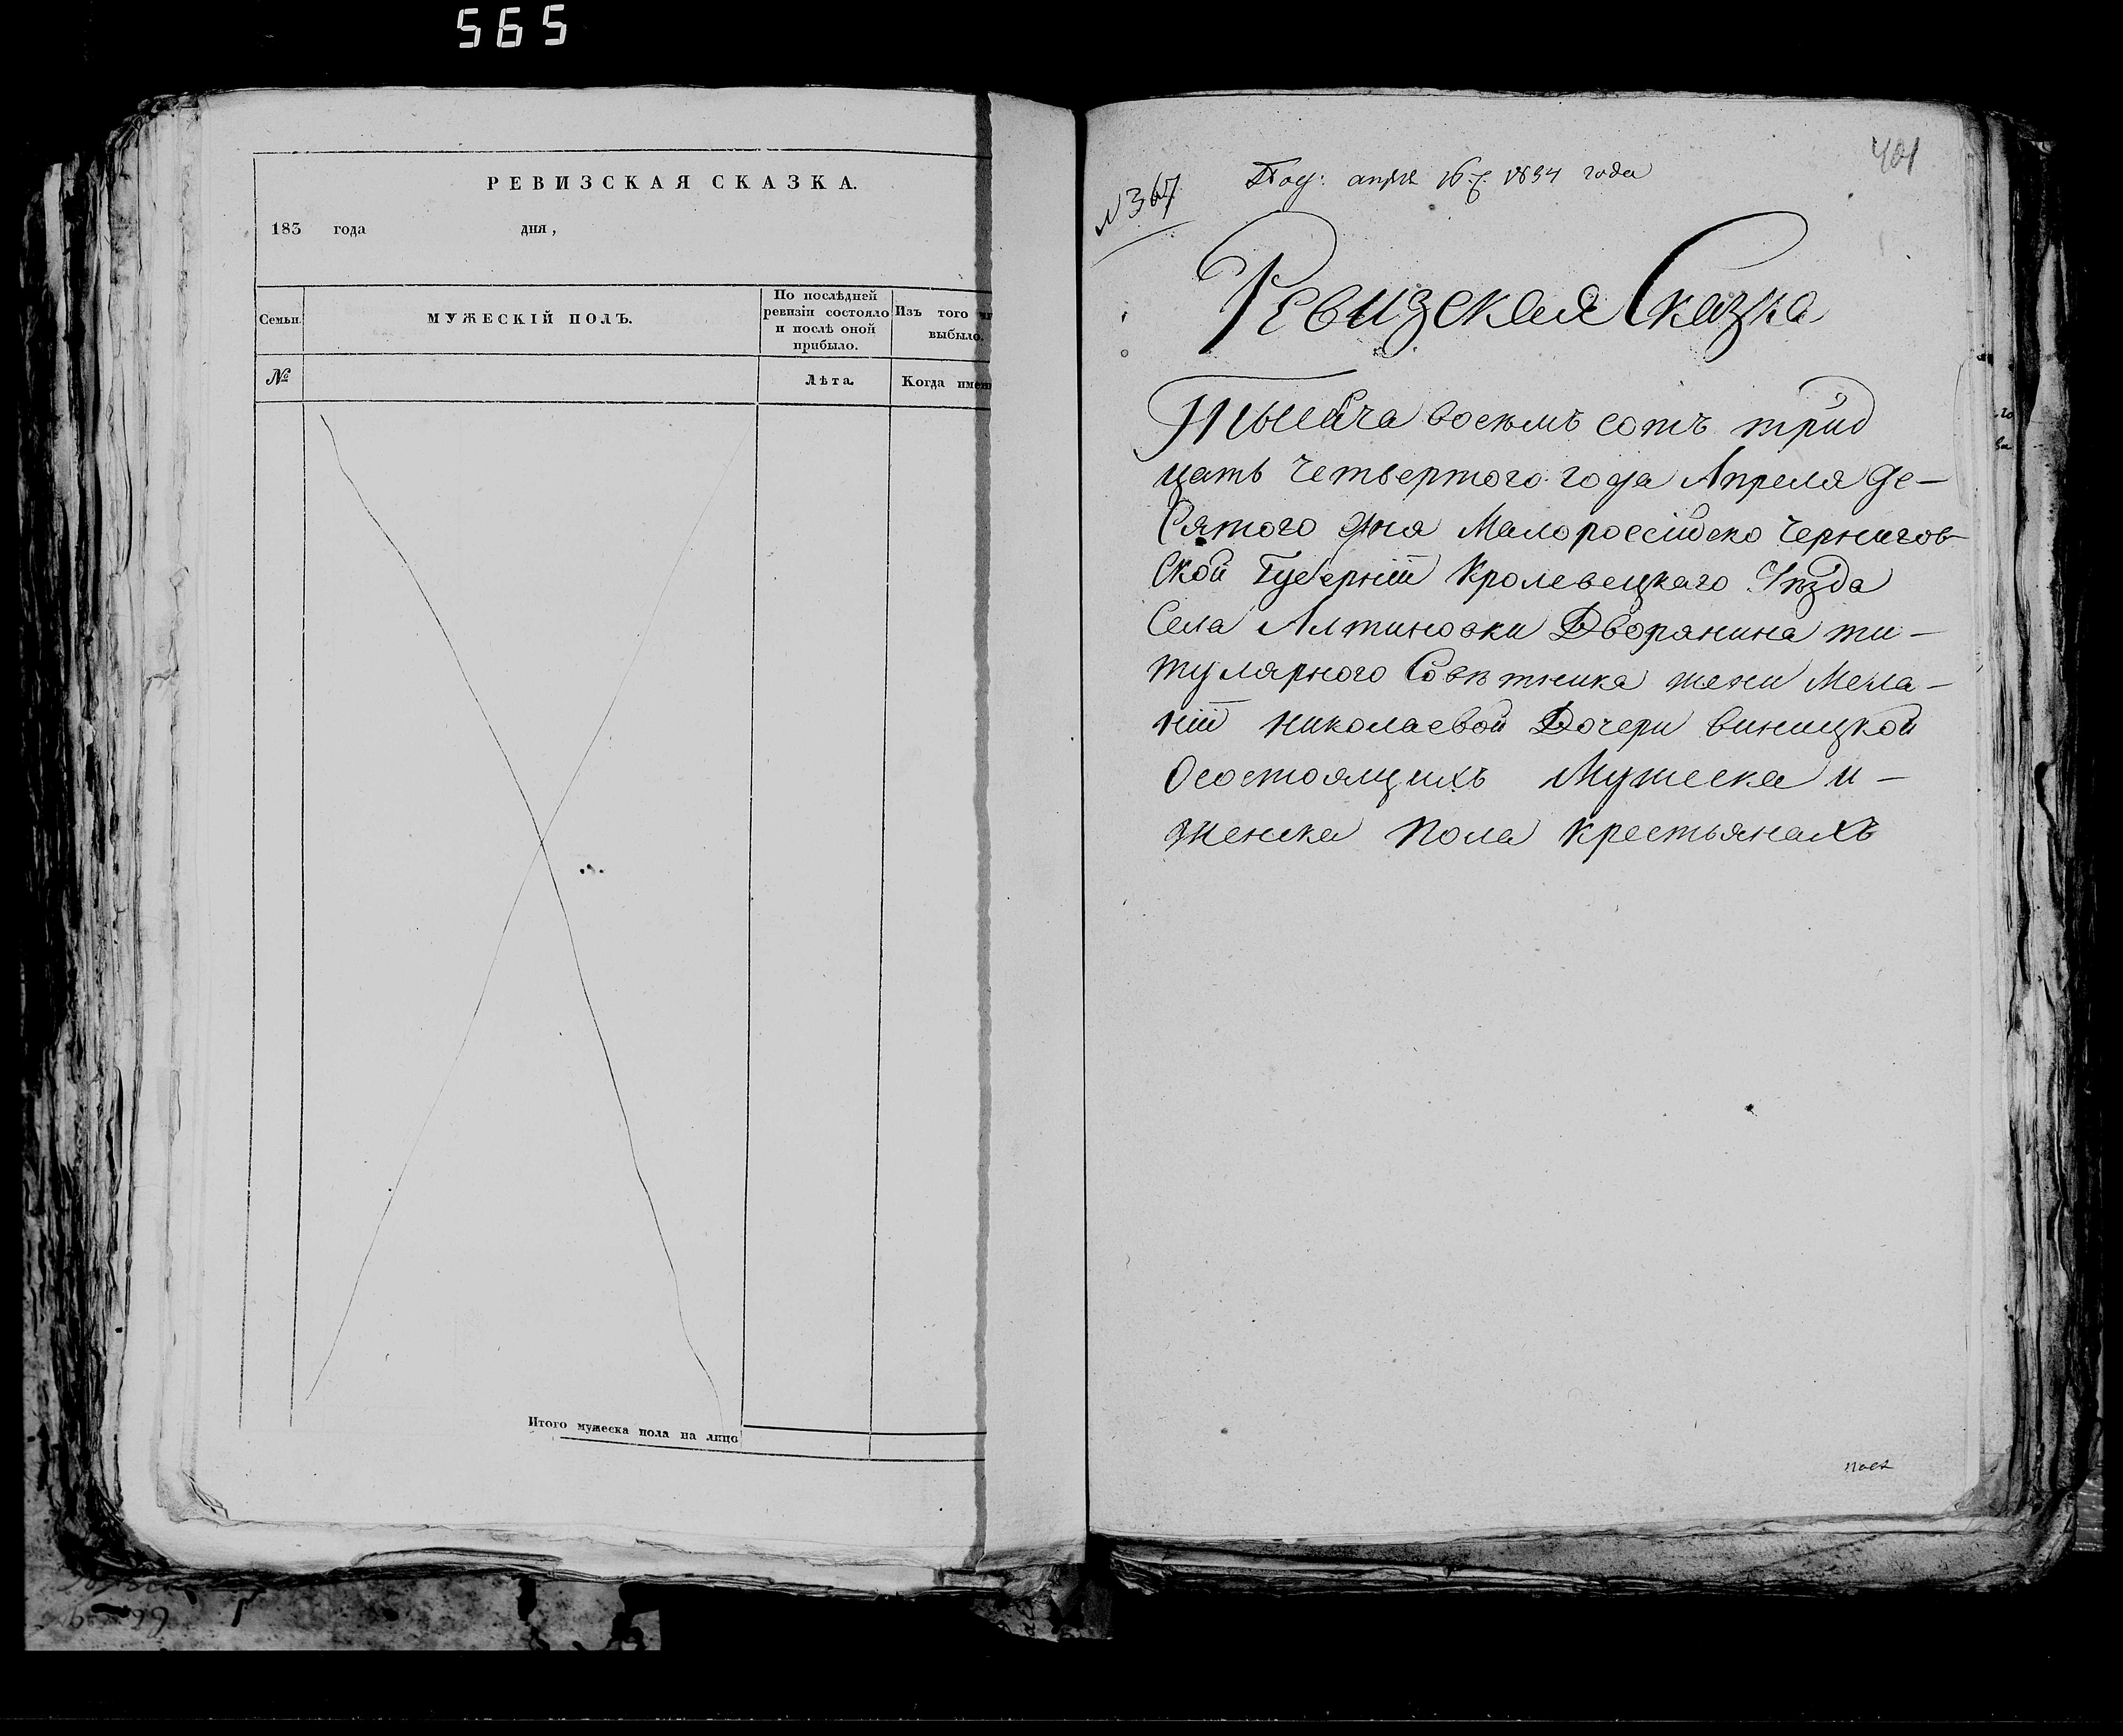 565
РЕВИЗСКАЯ СКАЗКА.
183 года дня,
Семьи.
МУЖЕСКІЙ ПОЛЪ.
По послѣдней
ревизіи состояло
и послѣ оной
прибыло.
Изъ того
выбыло.
№
Лѣта.
Когда имен
Итого мужеска пола на лицо
401
№ 367
Под: апрѣ 16 1834 года
Ревизская Сказка
Тысяча восемъ сотъ трид
цать четвертого года Апреля де-
сятого дня Малоросcійско Чернигов-
ской Губерніи Кролевецкаго Уѣзда
Села Алтиновки Дворянина ти-
тулярного Совѣтника жени Мела-
ніи Николаевой Дочери Виницкой
Осостоящихъ Мужеска и-
женска пола крестьянахъ